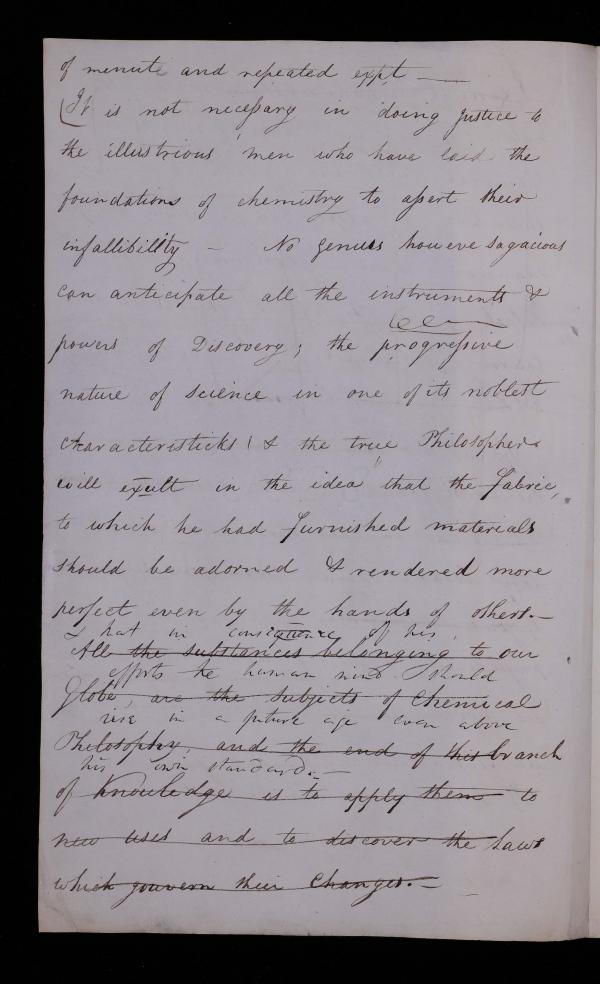 of minute and repeated expt —
(It is not necessary in doing justice to
the illustrious men who have laid the
foundations of chemistry to assert their
infallibility – No genius howeve sagacious
can anticipate all the instruments &
powers of Discovery; the progressive
nature of science in one of its noblest
characteristicks! & the true Philosopher
will exult in the idea that the fabric,
to which he had furnished materials
should be adorned & rendered more
perfect even by the hands of others.—
& that in consequence of his
All the substances belonging to our
efforts the human mind should
Globe, are the subjects of Chemical
rise in a future age even above
Philosophy, and the end of this branch
his own standard. —
of Knowledge is to apply them to
new uses and to discover the Laws
which gouvern their Changes. —